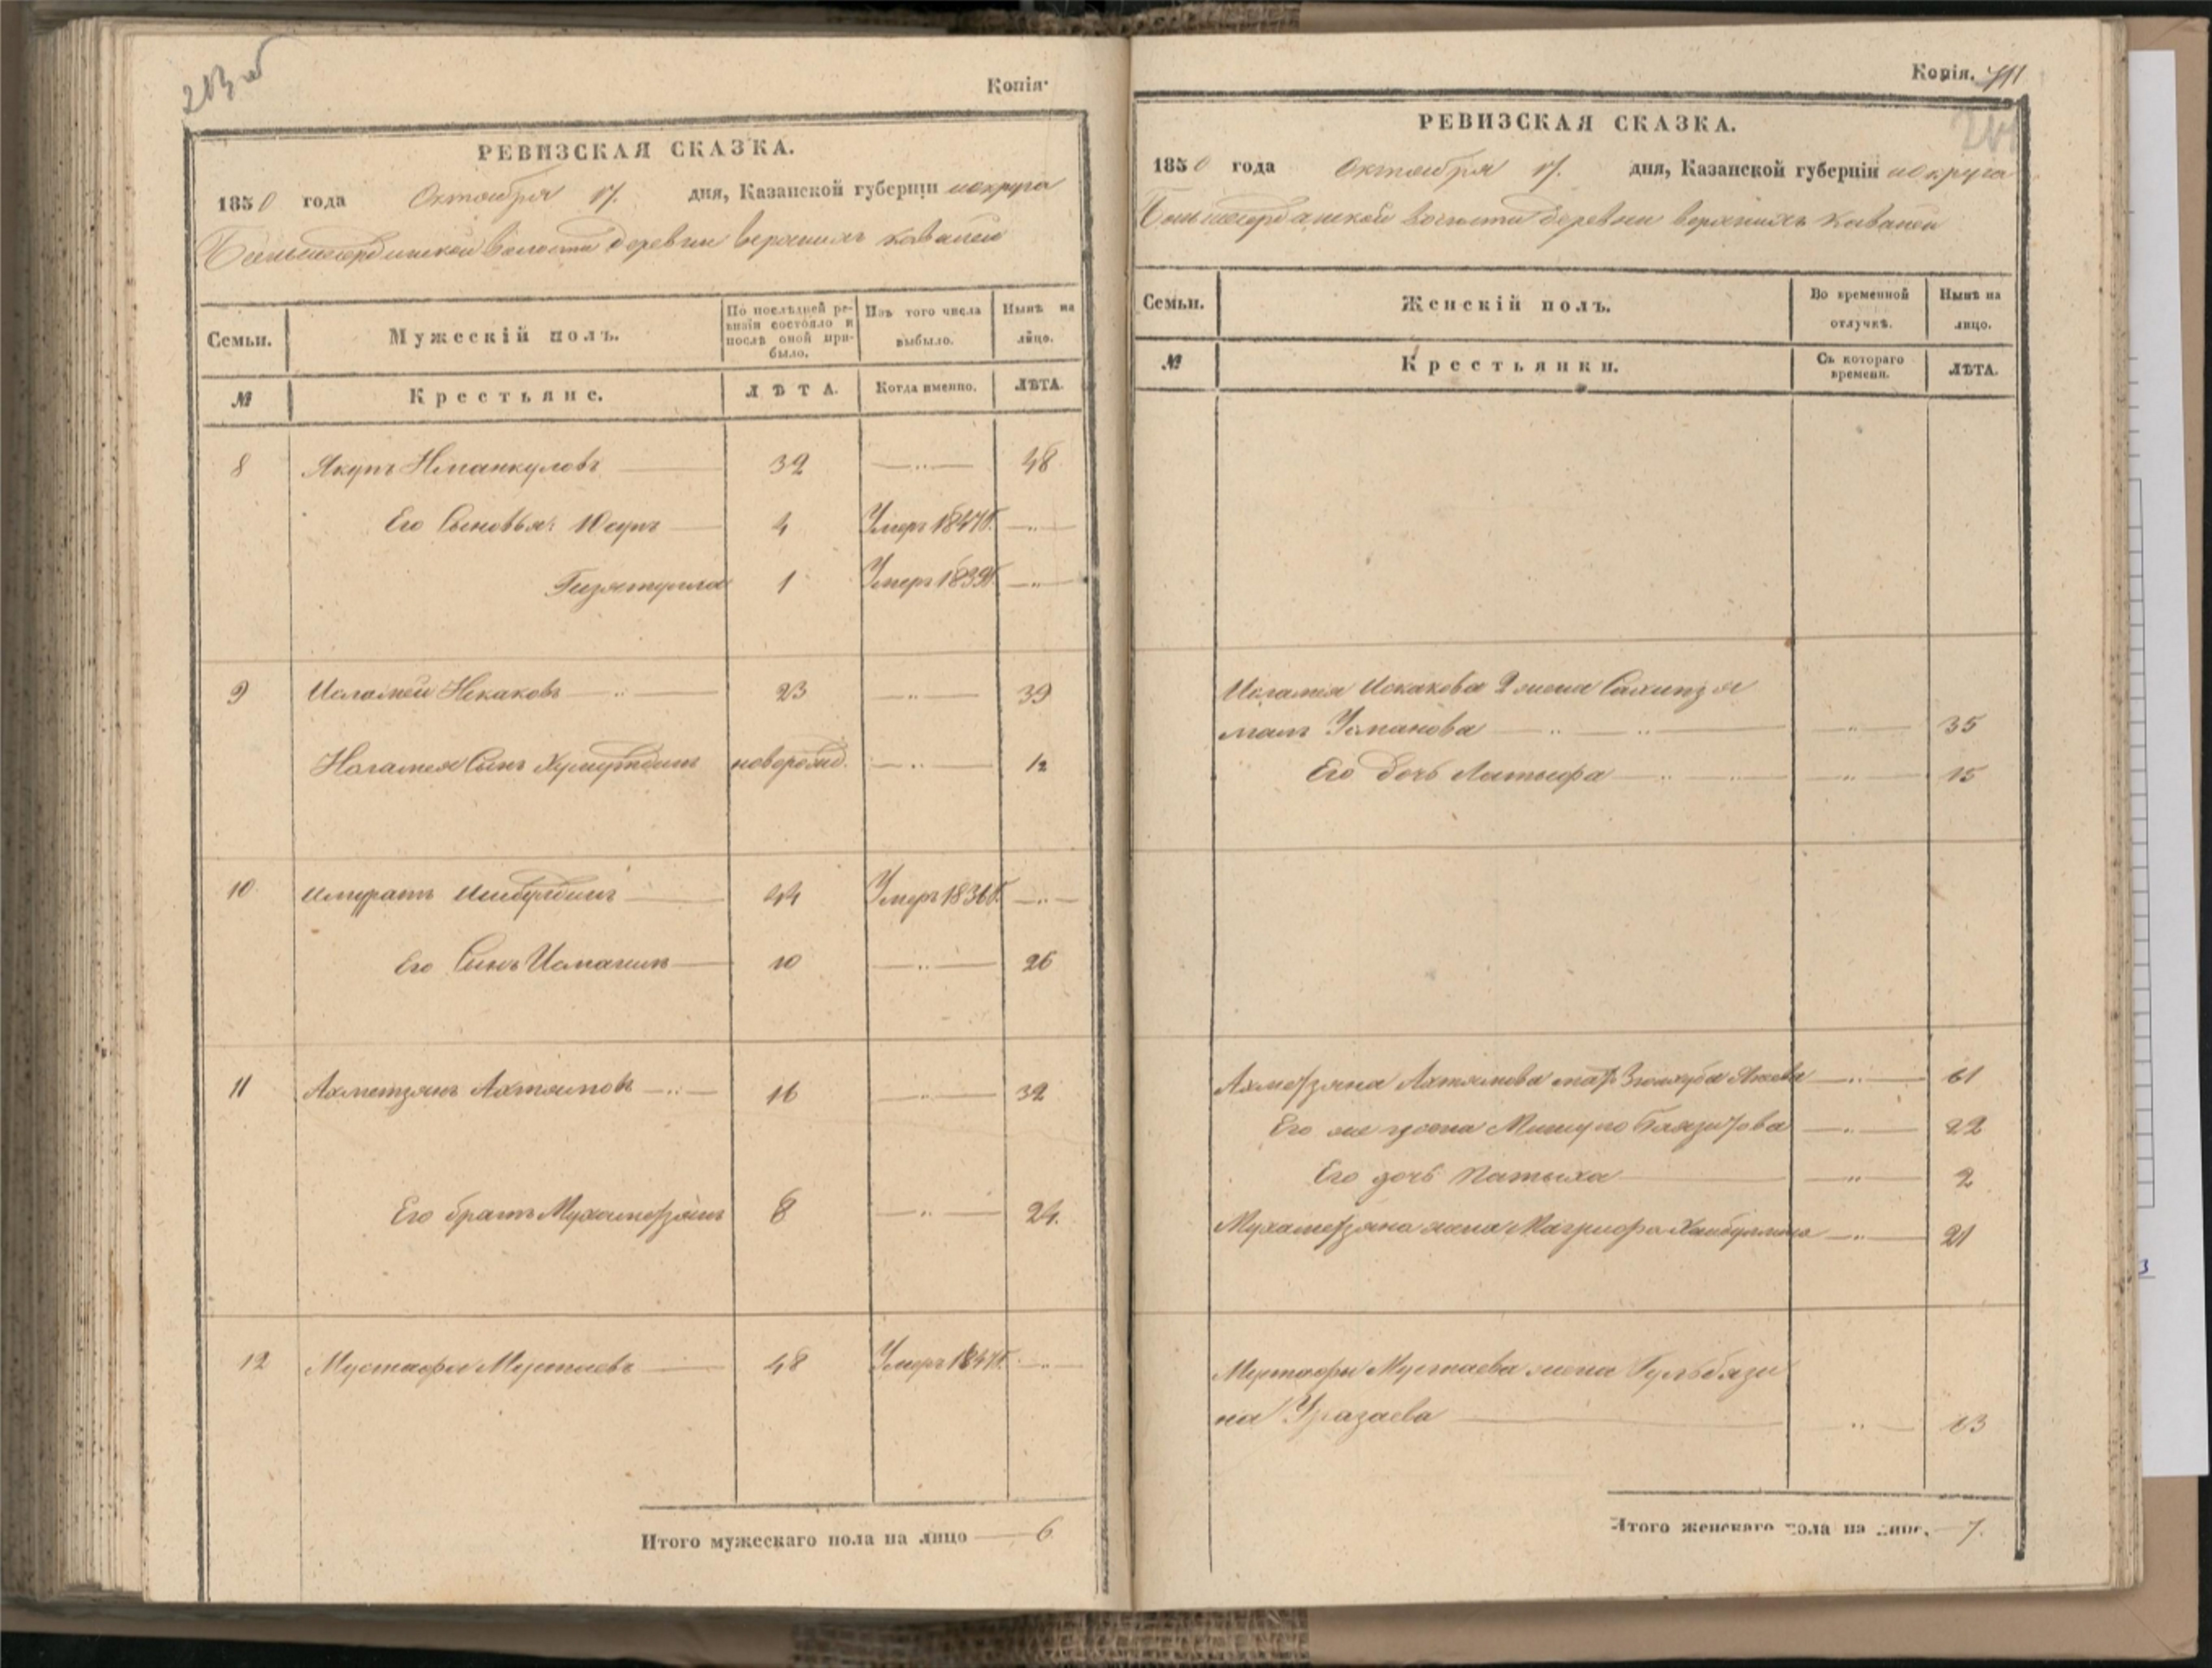 213 об
Копія.
РЕВИЗСКАЯ СКАЗКА.
1850 года Октября 17. дня, Казанской губерніи и округа
Большесердинской Волости деревни верхнихъ Ковалей
Семьи.
Мужескій полъ.
По послѣдней ревизіи состояло и послѣ оной прибыло.
Изъ того числа выбыло.
Нынѣ на лицо.
№
Крестьяне.
ЛѢТА.
Когда именно.
ЛѢТА.
8 Якупъ Иманкуловъ 32 —"— 48
Его Сыновья: Юсупъ 4 Умеръ 1847 г. —"—
Гизятулла 1 Умеръ 1839 г. —"—
9 Исламей Искаковъ —"— 23 —"— 39
Исламея Сынъ новорожд. —"— 12
10 Ишбулдинъ 44 Умеръ 1836 г. —"—
Его Сынъ Исмагилъ 10 —"— 26
11 Ахметзянъ Ахтямовъ —"— 16 —"— 32
Его братъ Мухаметзянъ 8 —"— 24.
12 Мустафа Мустаевъ 48 Умеръ 1847 г. —"—
Итого мужескаго пола на лицо — 6
Копія.
РЕВИЗСКАЯ СКАЗКА.
1850 года Октября 17. дня, Казанской губерніи и округа
Большесердинской Волости деревни верхнихъ Ковалей
Семьи.
Женскій полъ.
Во временной отлучкѣ.
Нынѣ на лицо.
№
Крестьянки.
Съ котораго времени.
ЛѢТА.
Исламея Искакова 2 жена
Усманова —"— 35
Его дочь Латыфа —"— 15
Ахметзяна Ахтямова мать —"— 61
Его же жена Баязитова —"— 22
Его дочь —"— 2
Мухаметзяна жена Магруфа Хайбуллина —"— 21
Мустафы Мустаева жена Гульбязи
на Уразаева —"— 43
Итого женскаго пола на лицо, — 7.